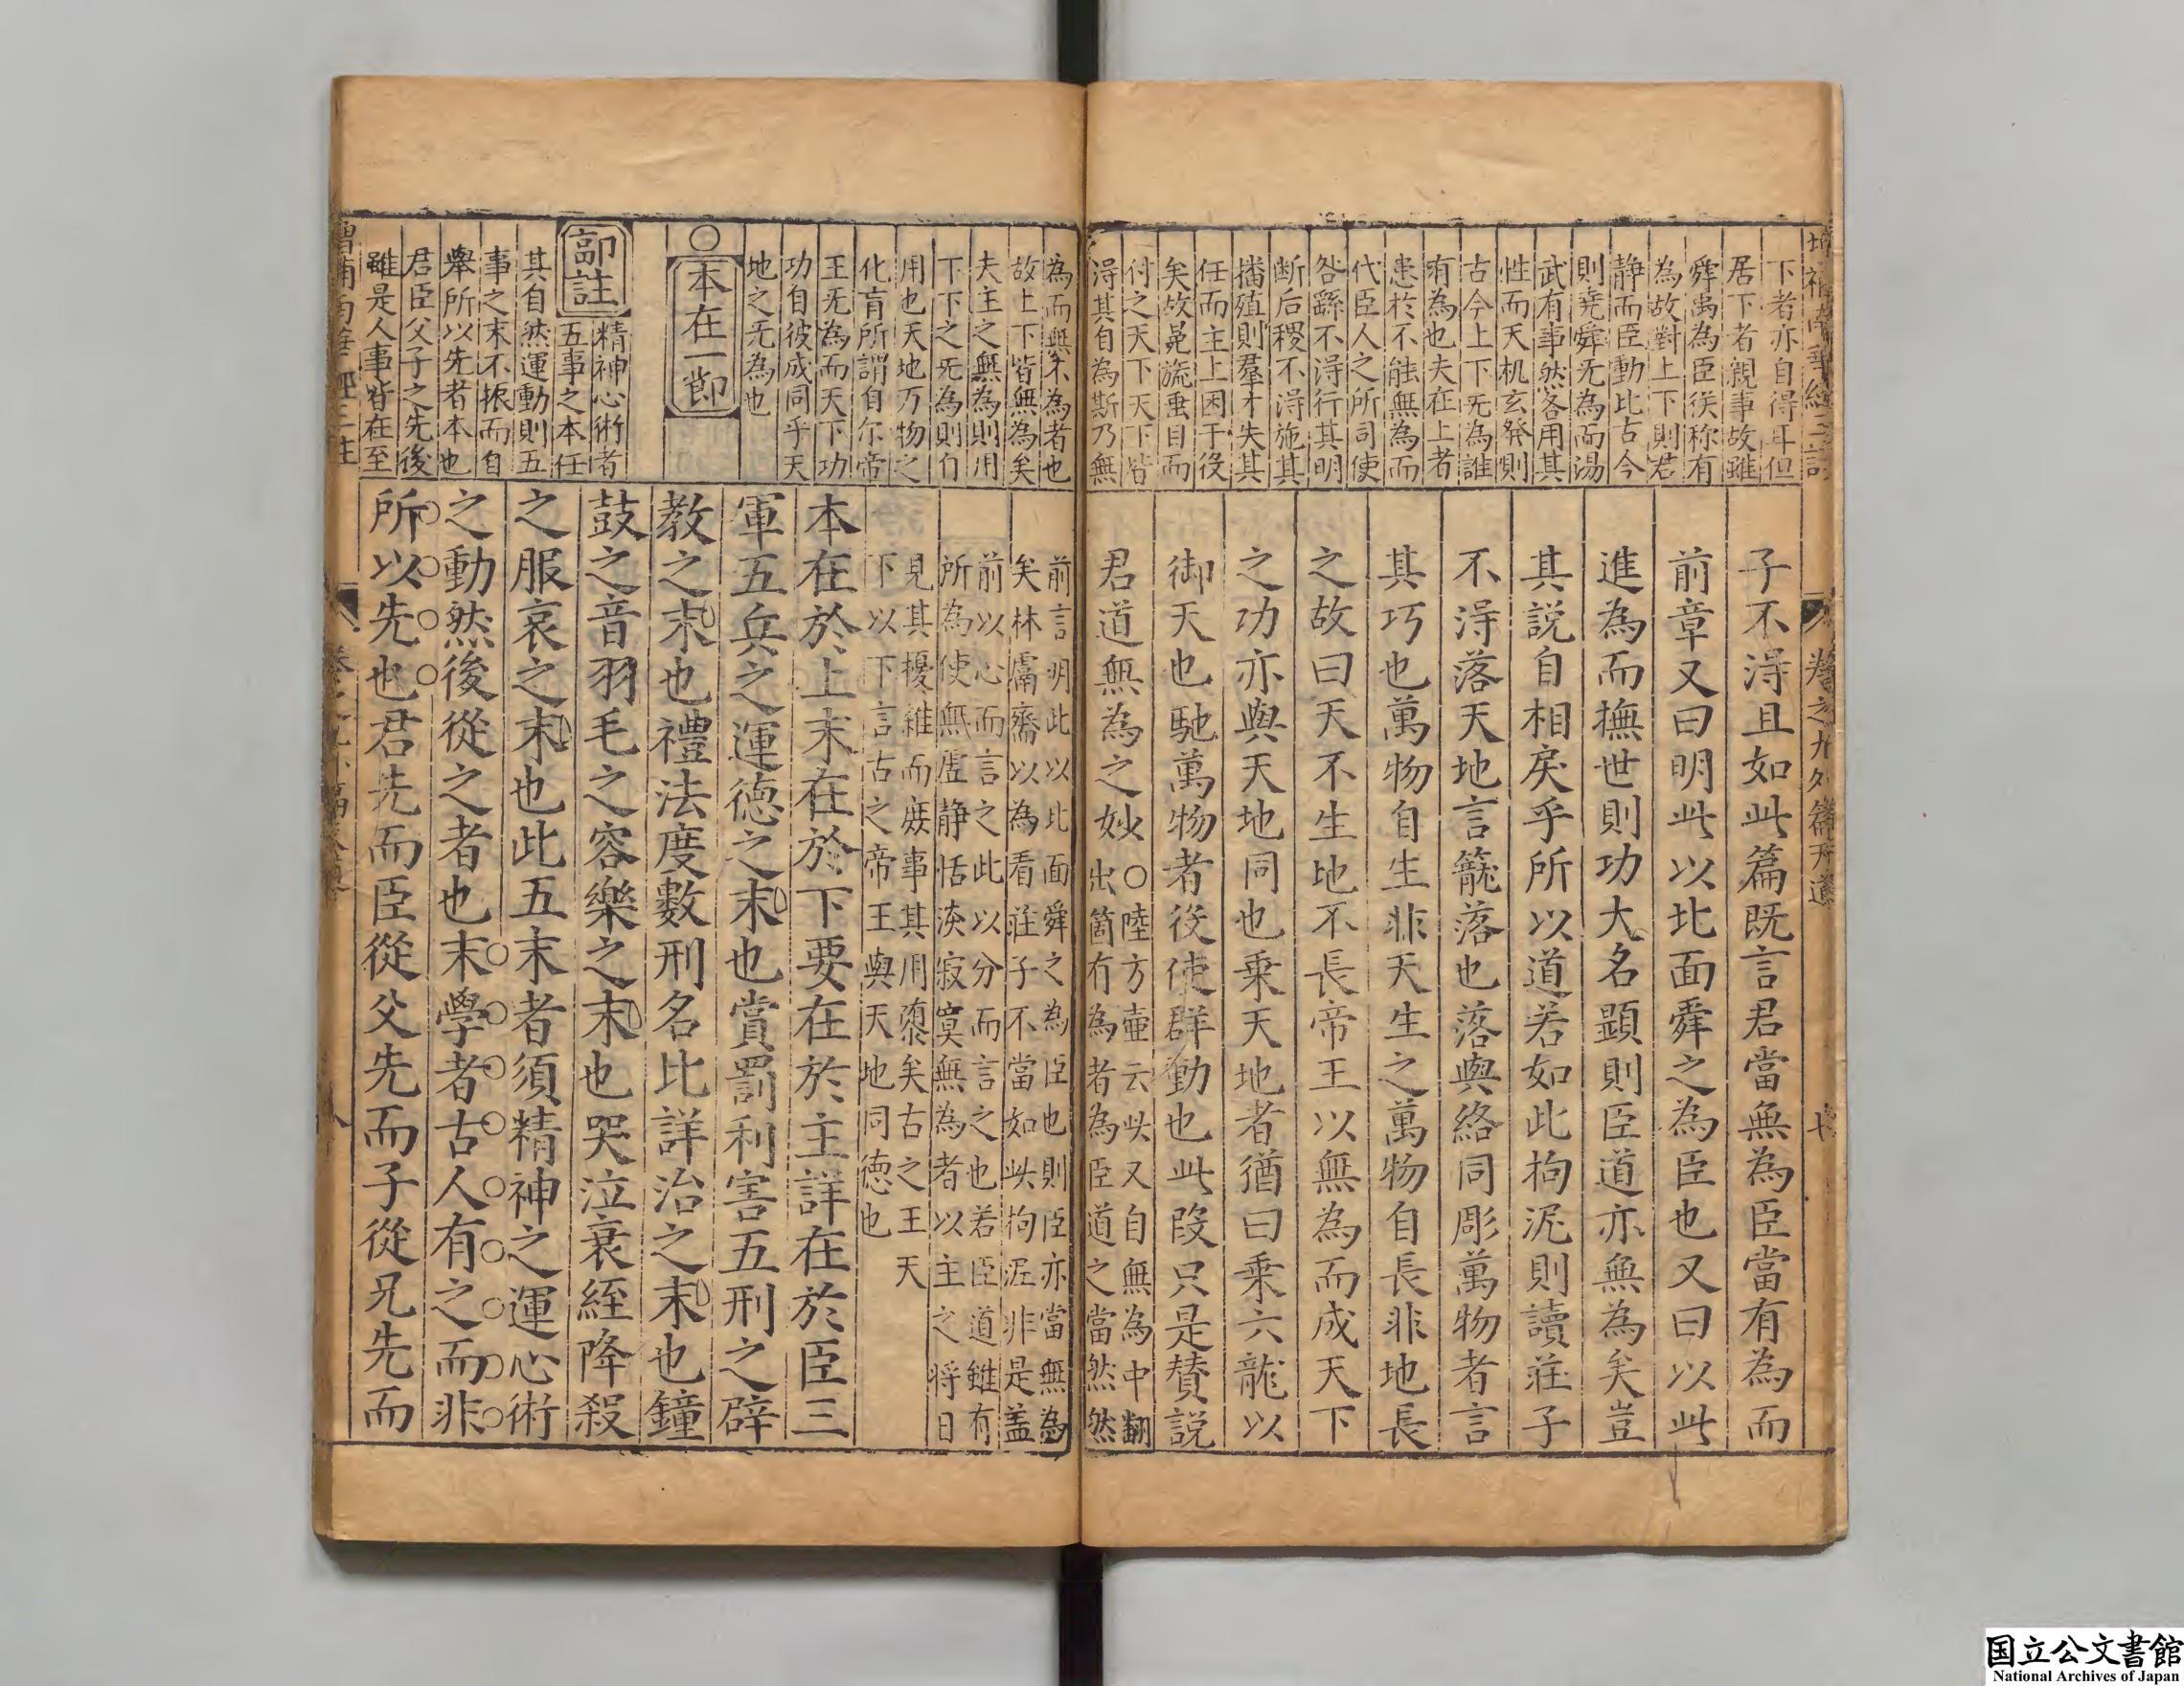 下者亦自得耳但
居下者親事故雖
舜禹為臣猶称有
為故對上下則君
静而臣動比古今
則尭舜无為而湯
武有事然各用其
性而天机玄發則
古今上下无為誰
有為也夫在上者
患於不能無為而
代臣人之所司使
咎繇不得行其明
断后稷不得施其
播殖則羣才失其
任而主上困于役
矣故冕旒垂目而
付之天下天下皆
得其自為斯乃無
子不得且如此篇既言君當無為臣當有為而
前章又曰明此以北面舜之為臣也又曰以此
進為而撫世則功大名顕則臣道亦無為矣豈
其説自相戾乎所以道若如此拘泥則讀莊子
不得落天地言籠落也落與絡同彫萬物者言
其巧也萬物自生非天生之萬物自長非地長
之故曰天不生地不長帝王以無為而成天下
之功亦與天地同也乗天地者猶曰乗六龍以
御天也馳萬物者役使群動也此段只是賛説
君道無為之妙〇陸方壷云此又自無為中翻
出箇有為者為臣道之當然然
卷之九外篇天道
七
為而無不為者也
故上下皆無為矣
夫主之無為則用
下下之无為則自
用也天地万物之
化育所謂自尓帝
王无為而天下功
功自彼成同乎天
地之无為也
〇本在一節
郭註
精神心術者
五事之本任
其自然運動則五
事之末不振而自
舉所以先者本也
君臣父子之先後
雖是人事皆在至
前言明此以此面舜之為臣也則臣亦當無為
矣林鬳齋以為看莊子不當如此拘泥非是盖
前以心而言之此以分而言之也若臣道雖有
所為使無虚静恬淡寂寞無為者以主之将日
見其擾雑而廢事其用隳矣古之王天
下以下言古之帝王與天地同徳也
本在於上末在於下要在於主詳在於臣三
軍五兵之運德之末也賞罰利害五刑之辟
教之末也禮法度數刑名比詳治之末也鐘
鼓之音羽毛之容樂之末也哭泣衰絰降殺
之服哀之末也此五末者須精神之運心術
之動然後從之者也末學者古人有之而非
所以先也君先而臣從父先而子從兄先而
国立公文書館
National Archives of Japan